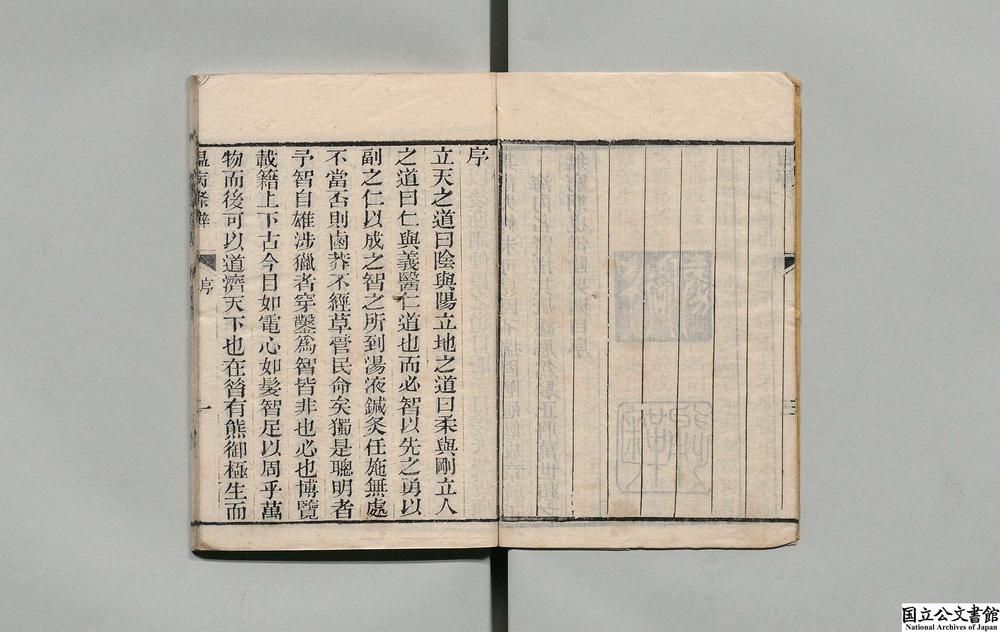 序
立天之道曰陰與陽立地之道曰柔與剛立人
之道曰仁與義醫仁道也而必智以先之勇以
副之仁以成之智之所到湯液鍼灸任施無處
不當否則鹵莽不經草菅民命矣獨是聰明者
予智自雄涉獵者穿鑿爲智皆非也必也博覽
載籍上下古今目如電心如髮智足以周乎萬
物而後可以道濟天下也在昝有熊御極生而
溫病條辨
序
一
国立公文書館
National Archives of Japan